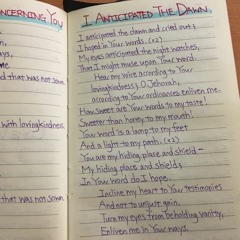 ONCERNING YOU
s,
e
d that was not sown.
with lovingkindness,
that was not sown
I ANTICIPATED THE DAWN
I anticipated the dawn and cried out;
I hoped in Your words. (x2)
My eyes anticipated the night watches,
That I might muse upon Your word.
Hear my voice according to Your
lovingkindness; O Jehovah,
according to Your ordinances enliven me.
How sweet are Your words to my taste!
Sweeter than honey to my mouth!
Your word is a lamp to my feet
And a light to my path. (x2)
You are my hiding place and shield–
My hiding place and shield;
In Your word do I hope.
Incline my heart to Your testimonies
And not to unjust gain.
Turn my eyes from beholding vanity;
Enliven me in Your ways.